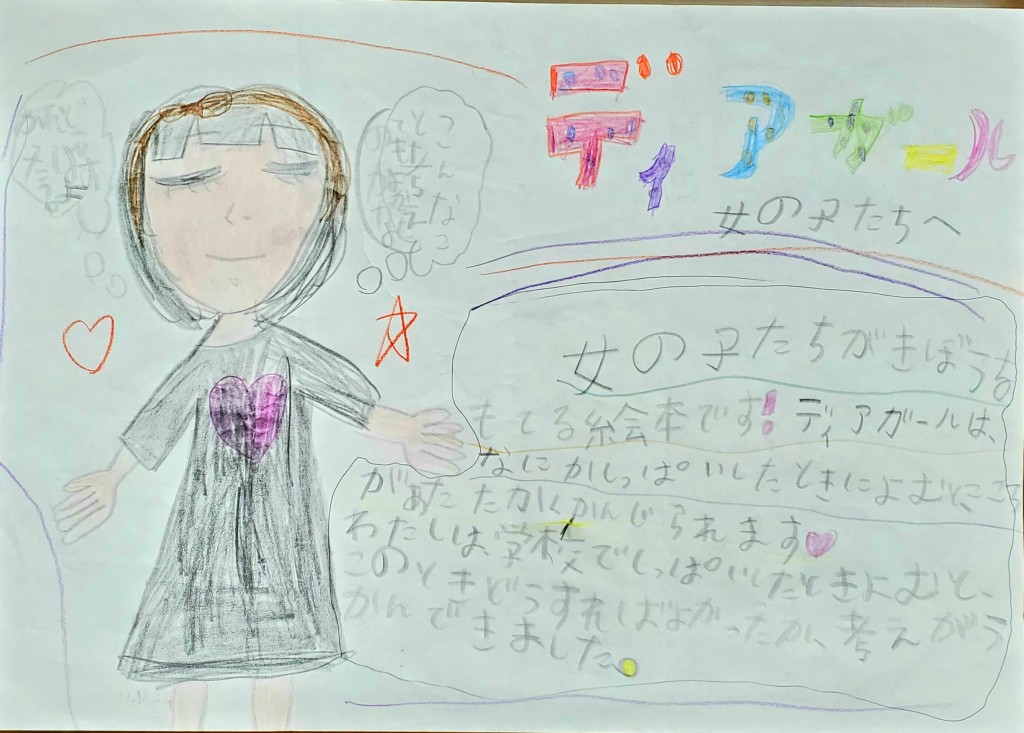 ディアガール
女の子たちへ
こんなこ
女の子たちがきぼうを
もてる絵本です!ディアガールは、
なにかしっぱいしたときによむとこころ
があたたかくかんじられます♥
わたしは、学校でしっぱいしたときよむと、
このときどうすればよかったか、考えがう
かんできました。